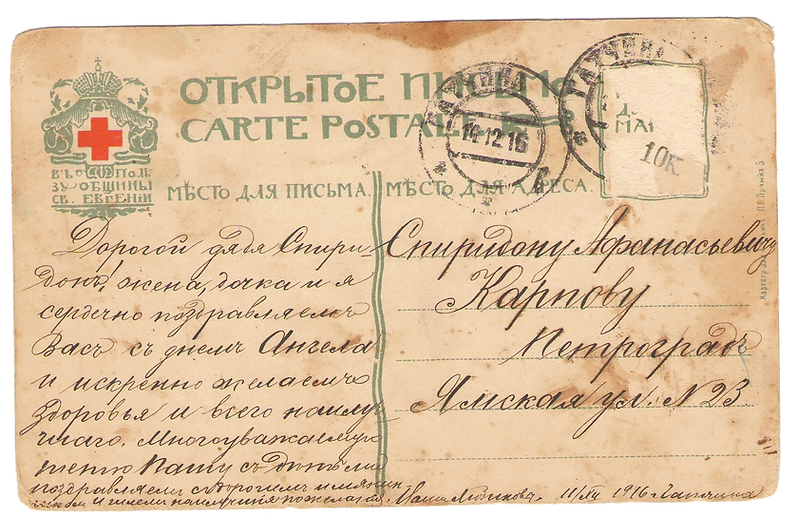 ОТКРЫТОЕ
CARTE POSTALE
ВЪ ПОЛЬ
ЗУ ОБЩИНЫ
СВ. ЕВГЕНІИ
МѢСТО ДЛЯ ПИСЬМА.
МѢСТО ДЛЯ АДРЕСА.
ГАТЧИНА
14 12 16
ГАТЧИНА
МАР
10К.
Дорогой дядя Спири-
донъ! жена, дочка и я
сердечно поздравляемъ
Васъ съ днемъ Ангела
и искренно желаемъ
здоровья и всего наилу
чшаго. Многоуважаемую
тетю Пашу съ
поздравляемъ съ дорогимъ имянин
и наилучшія пожеланія.
11/XII 1916 г. Гатчина
Спиридону Афанасьевичу
Карпову
Петроградъ
Ямская ул. N 23.